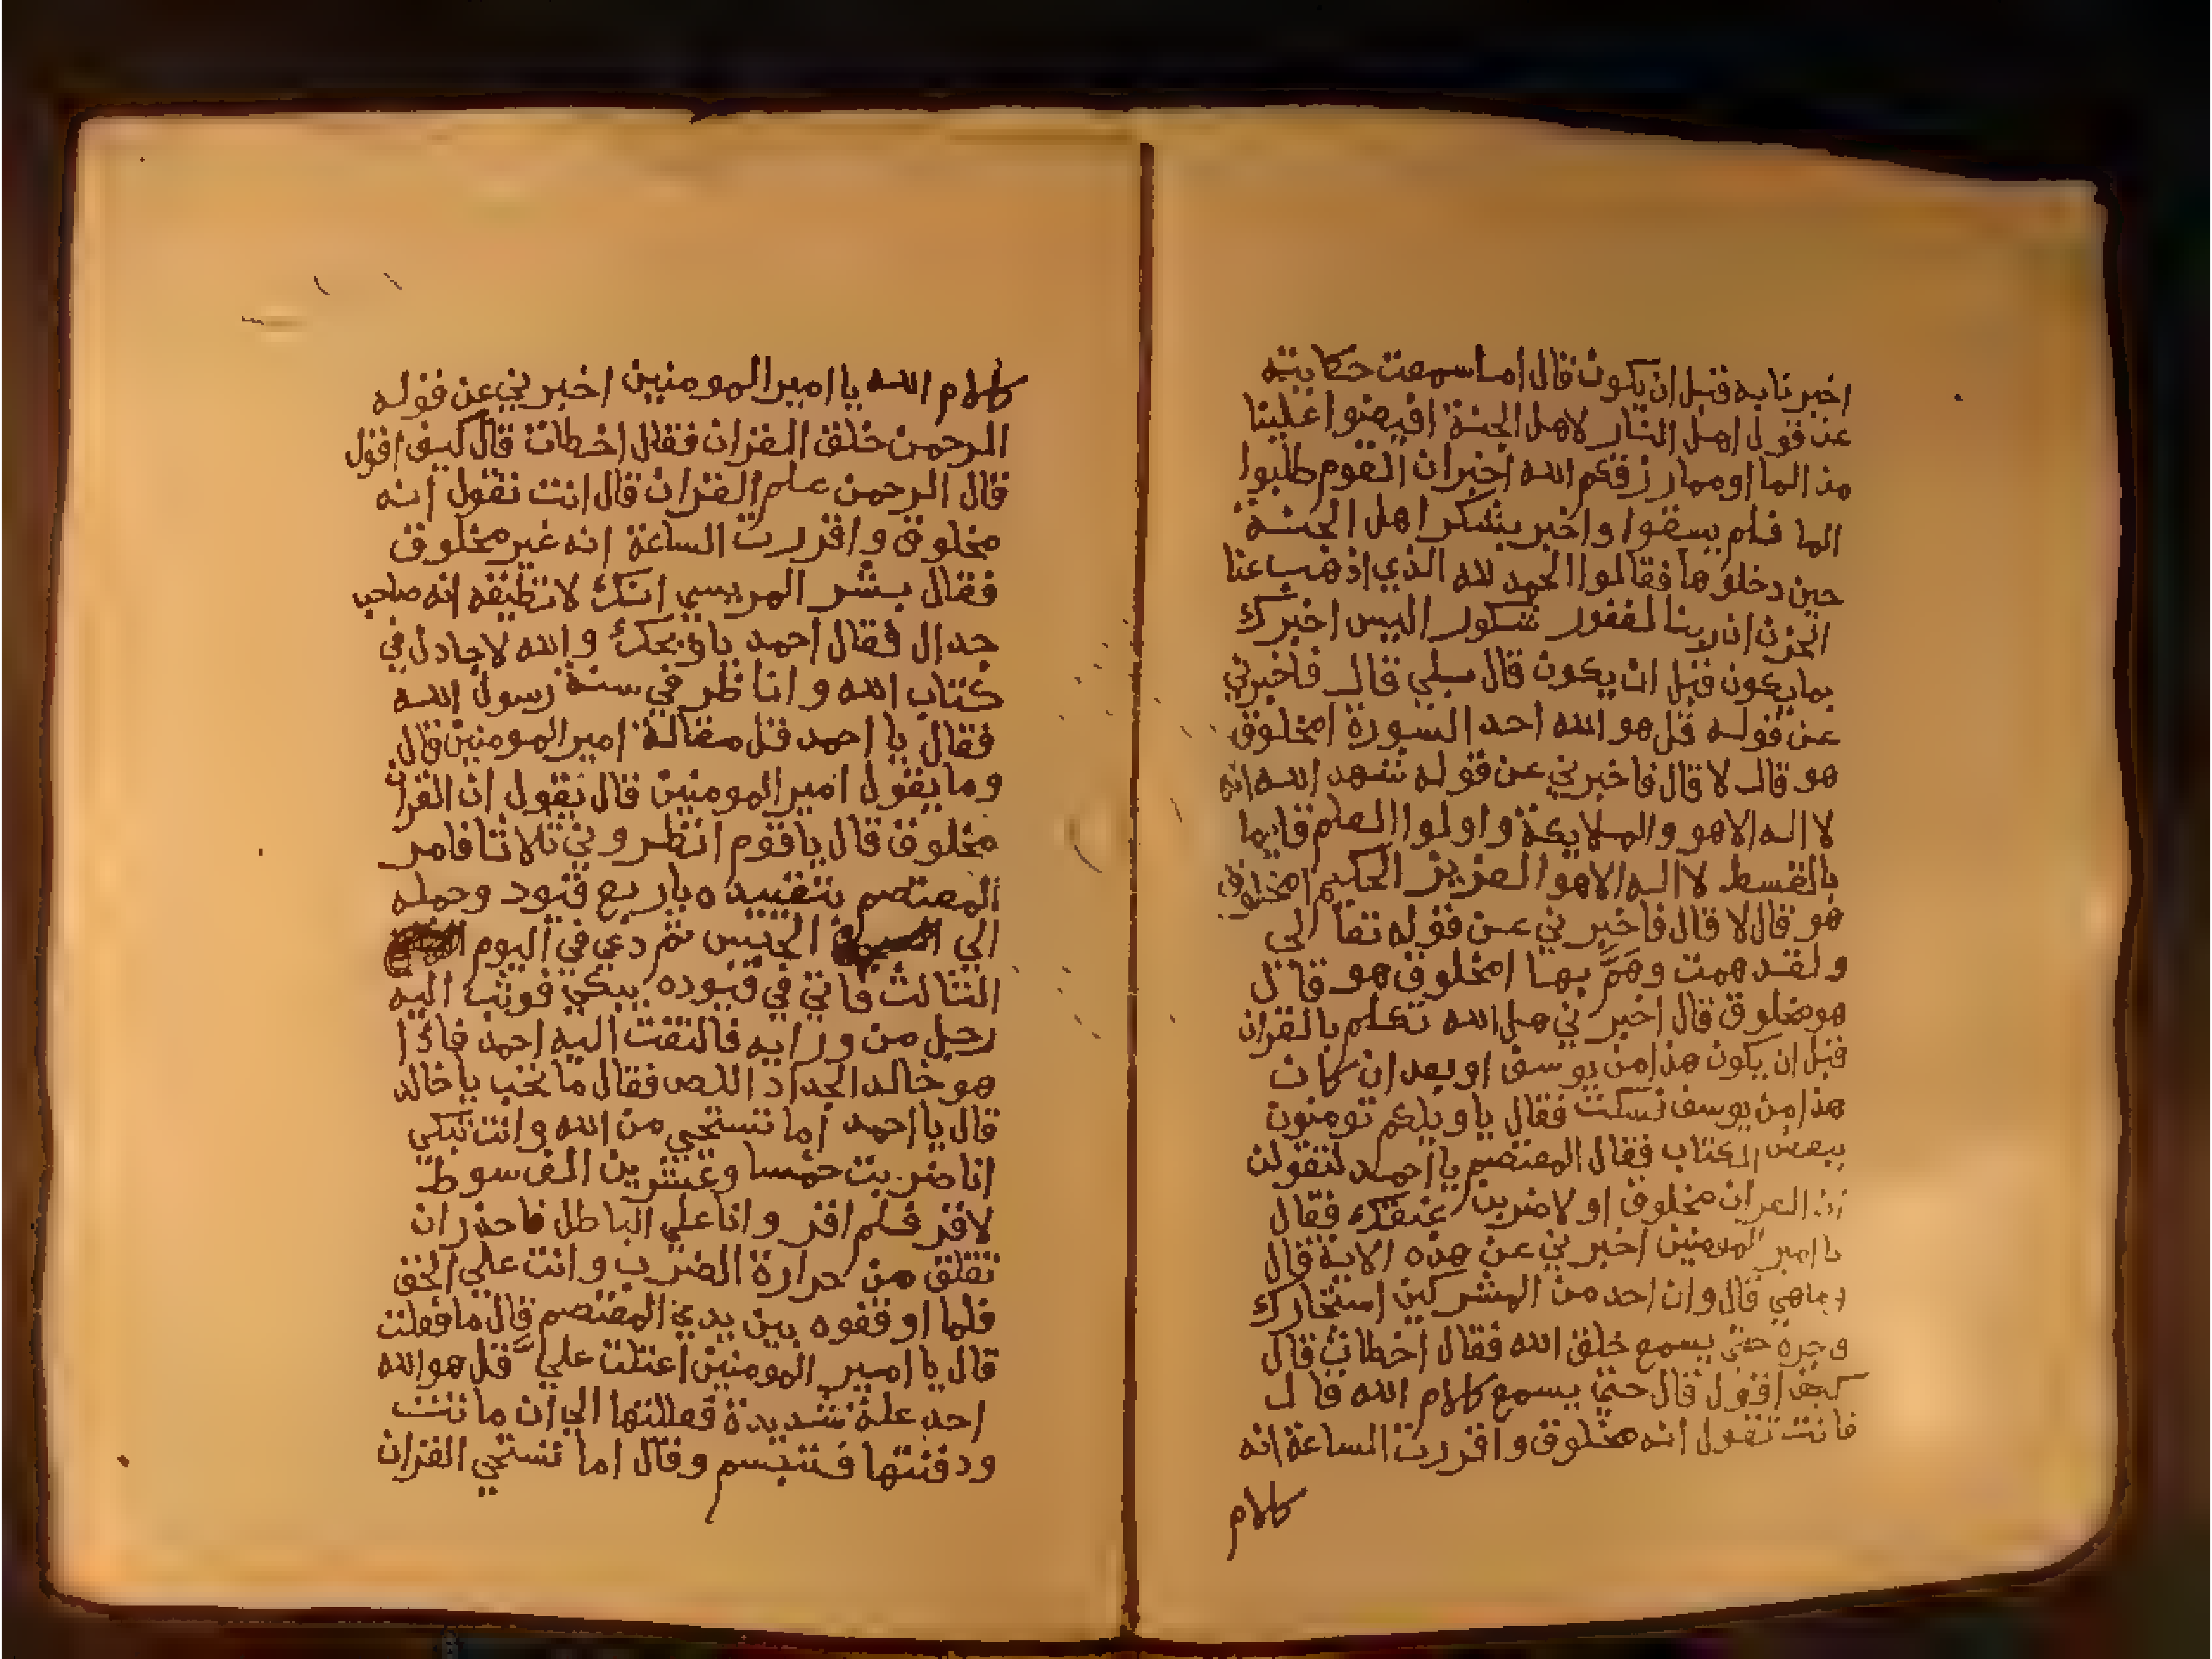 اخبرنا به قبل ان يكون قال اما سمعت حكايته
عن قول اهل النار لاهل الجنة افيضوا علينا
من الما او مما رزقكم الله اخبر ان القوم طلبوا
الما فلم يسقوا واخبر بشكر اهل الجنة
حين دخلوها فقالوا الحمد لله الذي اذهب عنا
الحزن ان ربنا لغفور شكور اليس اخبرك
بما يكون قبل ان يكون قال بلي قال فاخبرني
عن قوله قل هو الله احد السورة امخلوق
هو قال لا قال فاخبرني عن قوله شهد الله انه
لا اله الا هو والملايكة واولوا العلم قايما
بالقسط لا اله الا هو العزيز الحكيم امخلوق
هو قال لا قال فاخبرني عن قوله تعالي
ولقد همت وهَمَّ بها امخلوق هو قال
هو مخلوق قال اخبرني هل الله تكلم بالقران
قبل ان يكون هذا من يوسف او بعد ان كان
هذا من يوسف فسكت فقال يا ويلكم تومنون
ببعض الكتاب فقال المعتصم يا احمد لتقولن
ان القران مخلوق او لاضربن عنقك فقال
يا امير المومنين اخبرني عن هذه الاية قال
وما هي قال وان احد من المشركين استجارك
فاجره حتى يسمع خلق الله فقال اخطات قال
كيف اقول قال حتي يسمع كلام الله قال
فانت تقول انه مخلوق واقررت الساعة انه
كلام
كلام الله يا امير المومنين اخبرني عن قوله
الرحمن خلق القران فقال اخطات قال كيف اقول
قال الرحمن علم القران قال انت تقول انه
مخلوق واقررت الساعة انه غير مخلوق
فقال بشر المريسي انك لا تطيقه انه صاحب
جدال فقال احمد يا ويحك والله لاجادل في
كتاب الله واناظر في سنة رسول الله
فقال يا احمد قل مقالة امير المومنين قال
وما يقول امير المومنين قال نقول ان القران
مخلوق قال يا قوم انظروني ثلاثا فامر
المعتصم بتقييده باربع قيود وحمله
الي الحبس ثم دعي في اليوم
الثالث فاتي في قيوده يبكي فوثب اليه
رجل من ورايه فالتفت اليه احمد فاذا
هو خالد الحداد اللص فقال ما تحب يا خالد
قال يا احمد اما تستحي من الله وانت تبكي
انا ضربت خمسا وعشرين الف سوط
لاقر فلم اقر وانا علي الباطل فاحذر ان
تقلق من حرارة الضرب وانت علي الحق
فلما اوقفوه بين يدي المعتصم قال ما فعلت
قال يا امير المومنين اعتلت عليَّ قل هو الله
احد علة شديدة فعللتها الي ان ماتت
ودفنتها فتبسم وقال اما تستحي القران